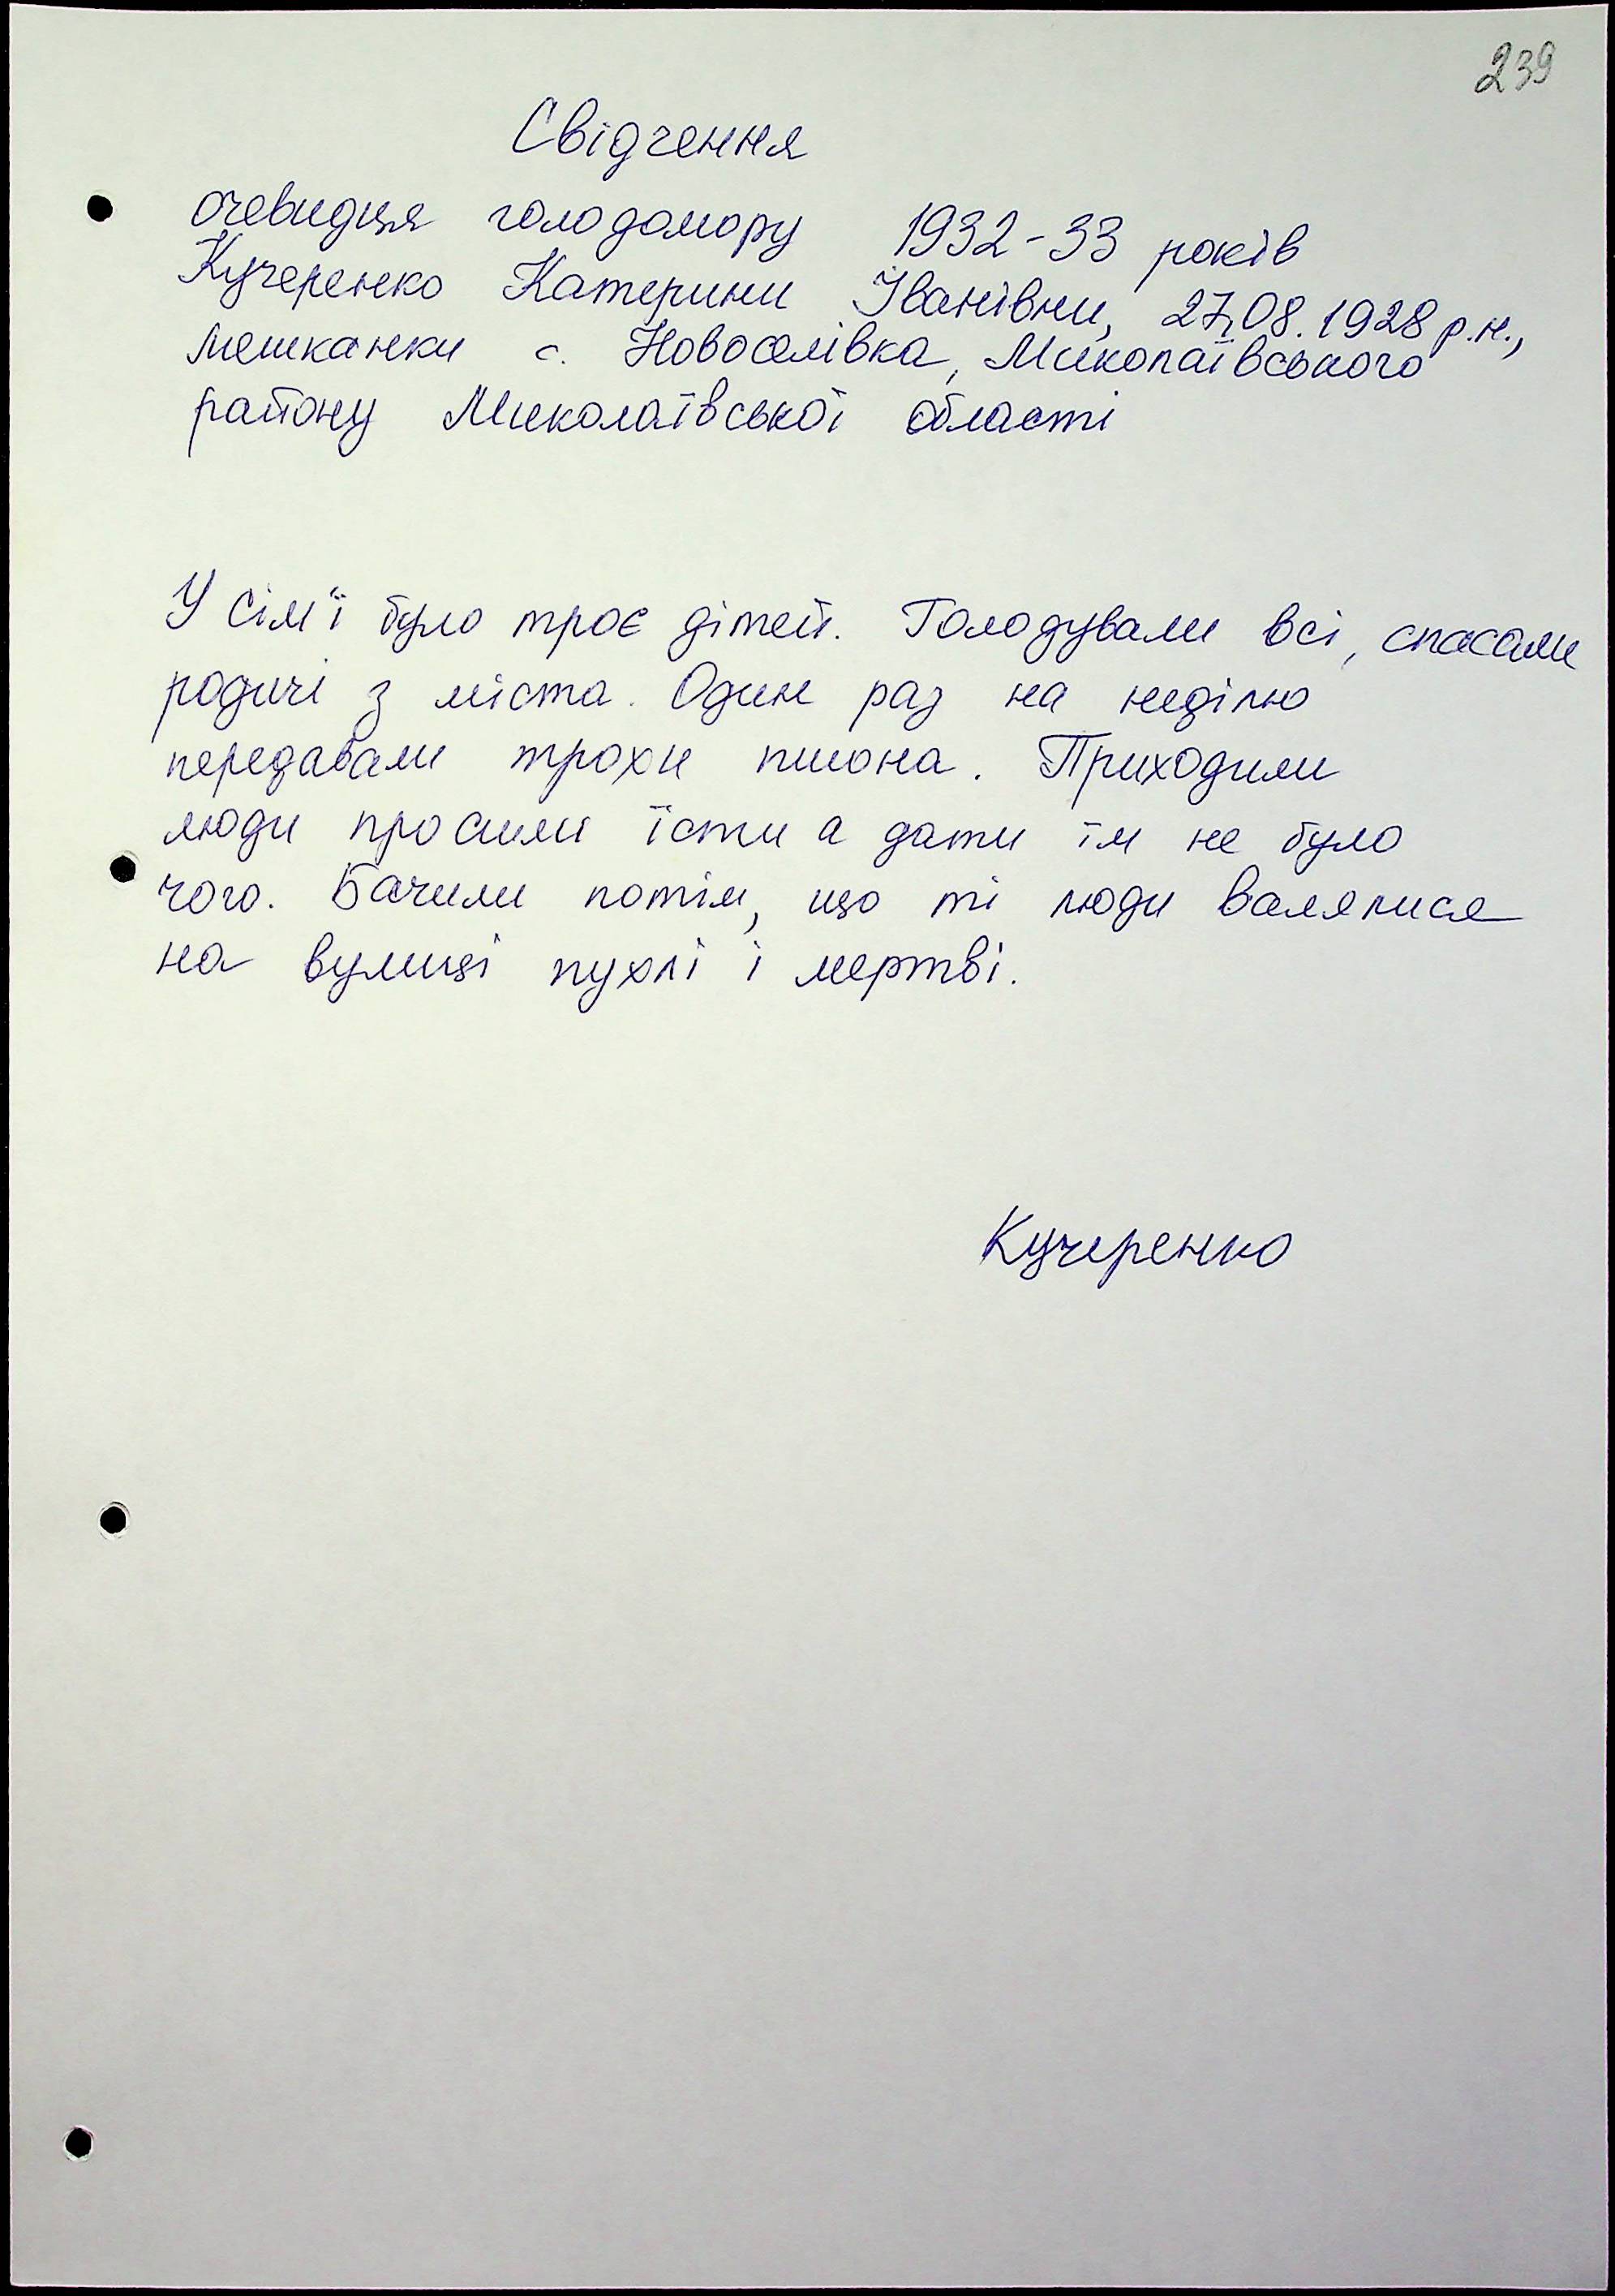 239
Свідчення
очевидця голодомору 1932-33 років
Кучеренко Катерини Іванівни, 27.08.1928 р.н.,
мешканки с. Новоселівка, Миколаївського
району Миколаївської області
У сім'ї було троє дітей. Голодували всі, спасали
родичі з міста. Один раз на неділю
передавали трохи пшона. Приходили
люди просили їсти а дати їм не було
чого. Бачили потім, що ті люди валялися
на вулиці пухлі і мертві.
Кучеренко